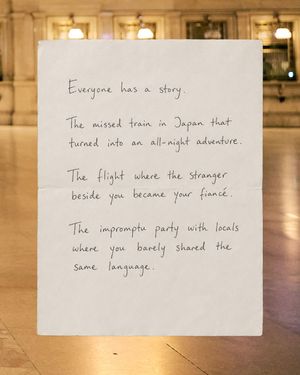 Everyone has a story.
The missed train in Japan that
turned into an all-night adventure.
The flight where the stranger
beside you became your fiancé.
The impromptu party with locals
where you barely shared the
same language.